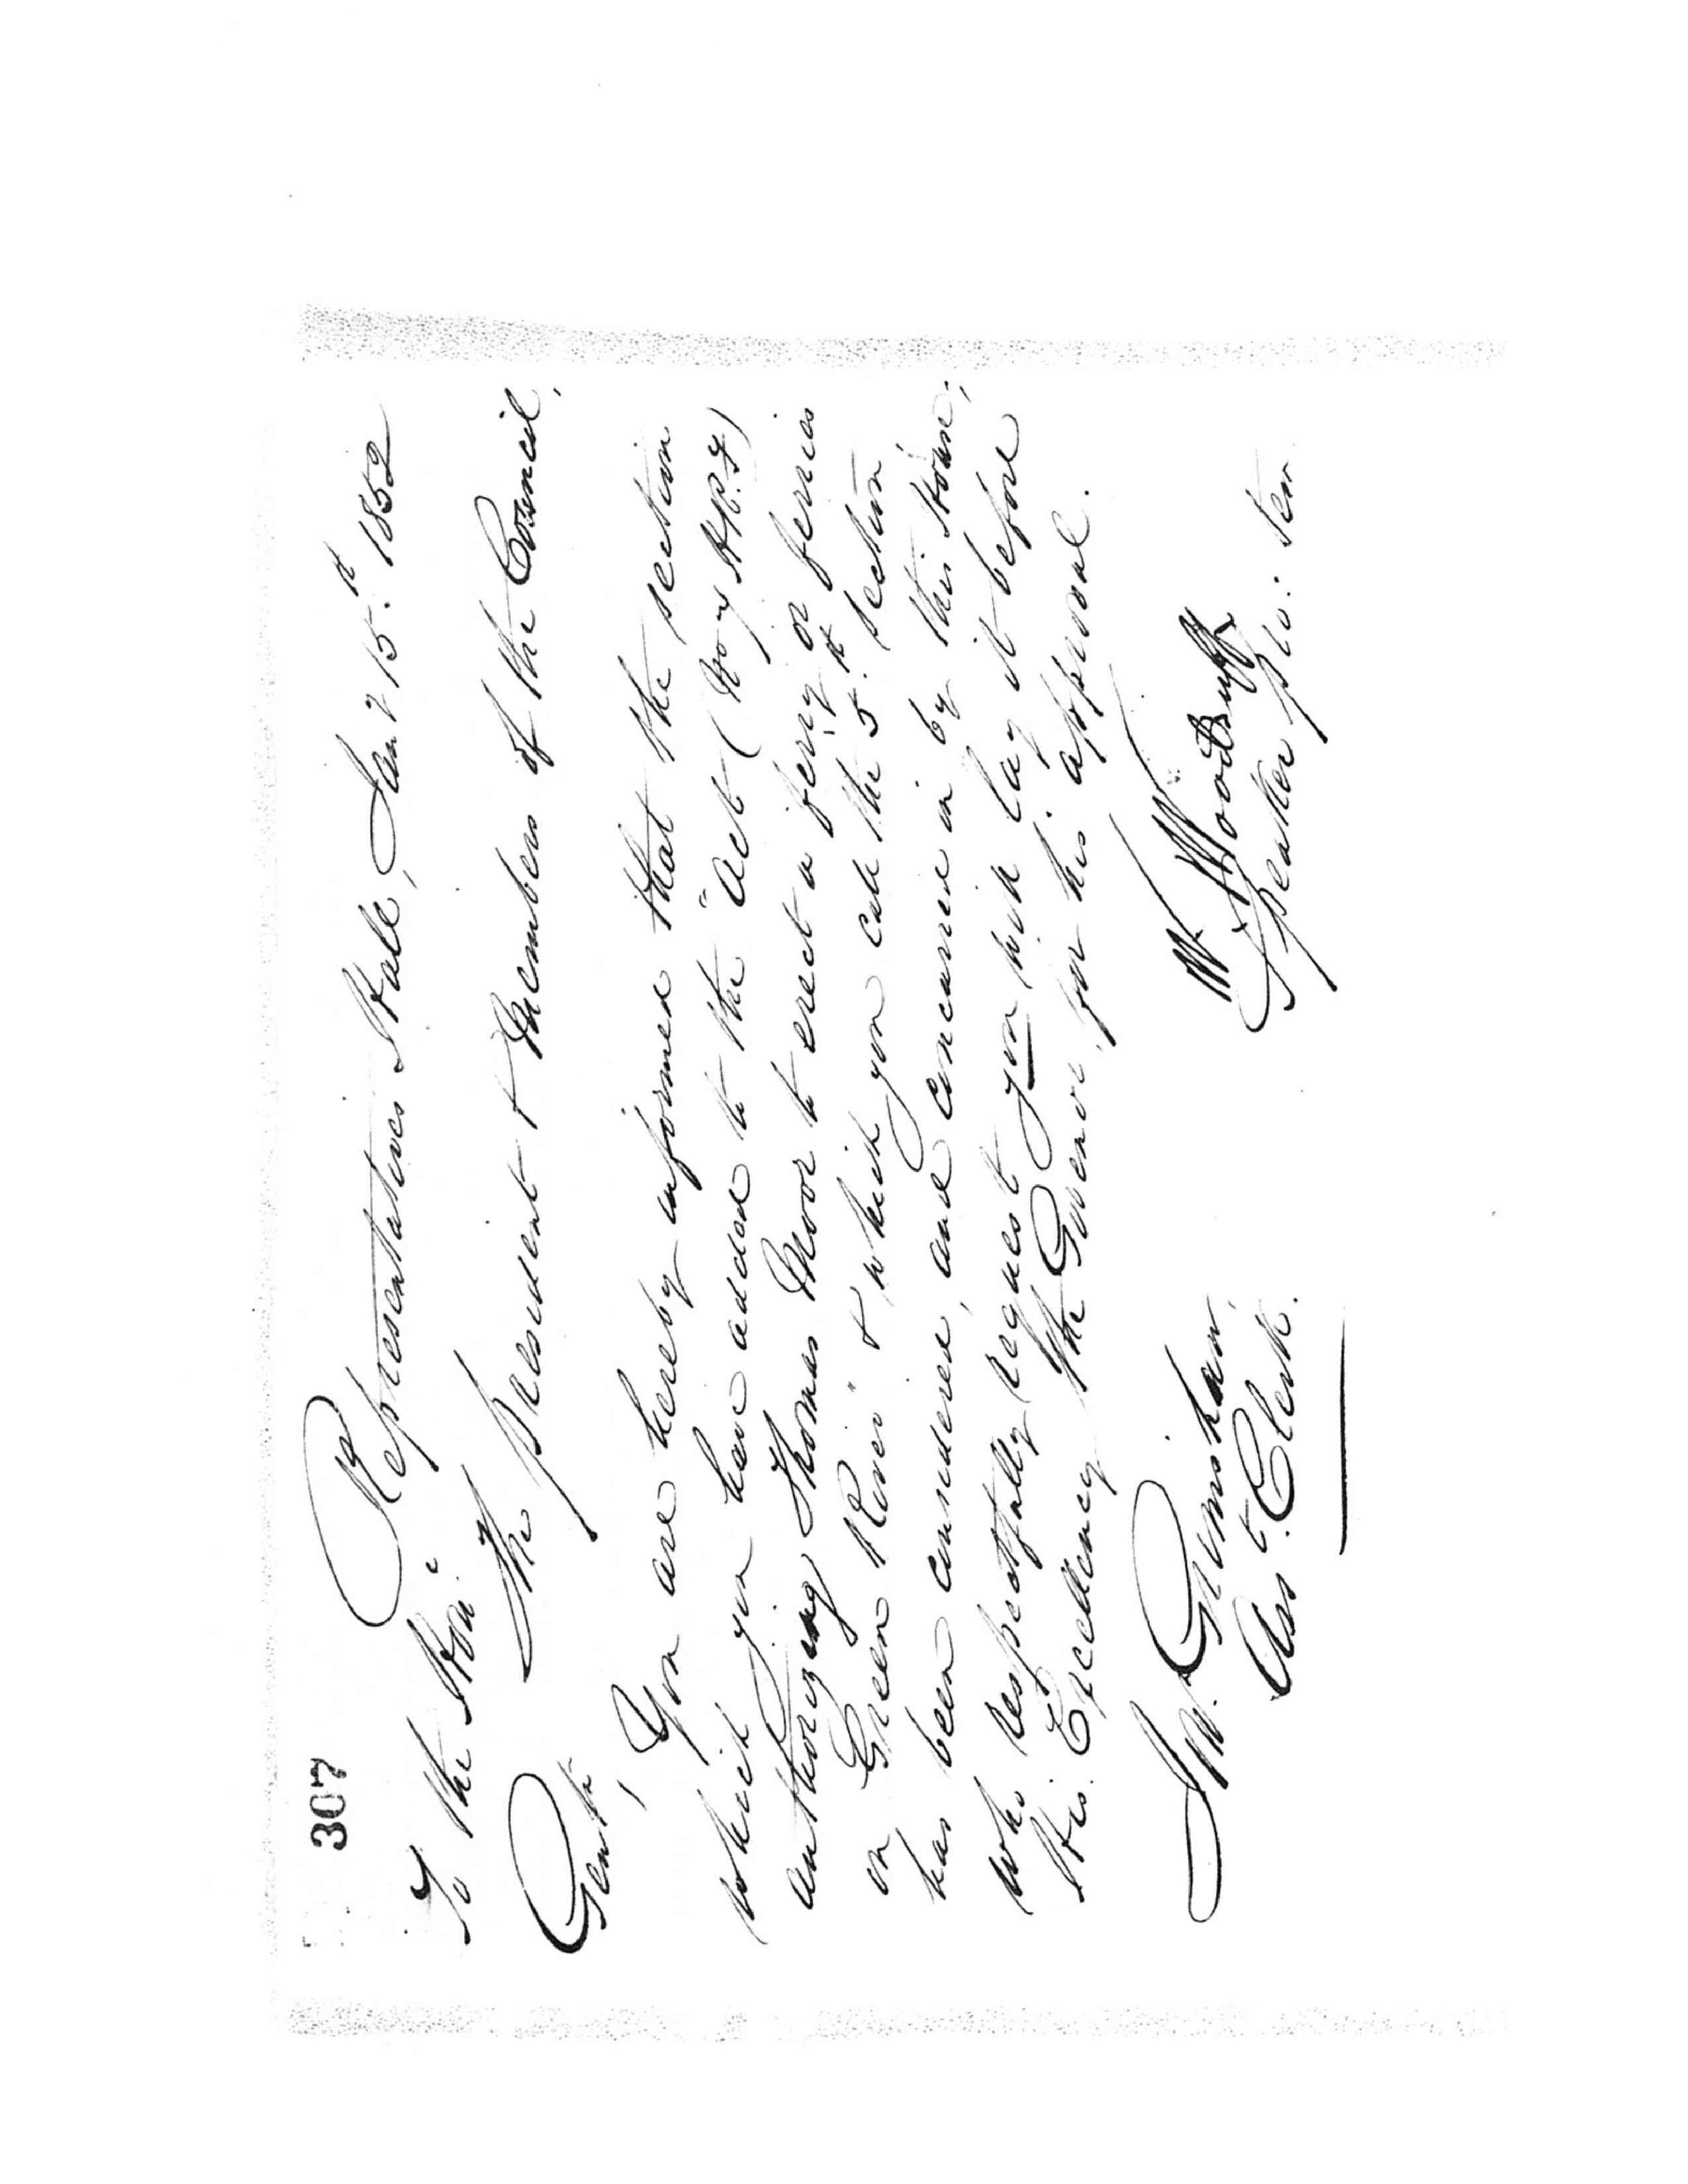 307
Representatives Hall, Jany 15.th 1852
To the Hon.e
The president & Members of the Council,
Gentn,
You are hereby informed that the section
which you have added to the "Act (No 7 H.R. f)
authorizing Thomas Moor to erect a ferry or ferries
on Green River" & which you call the 5.th section
has been considered, and concurred in by this House;
who respectfully request you wil lay it before
His Excellency the Govenor for his approval.
W. Woodruff
Speaker pro. tem
J. Grimshaw,
Ass.t Clerk.